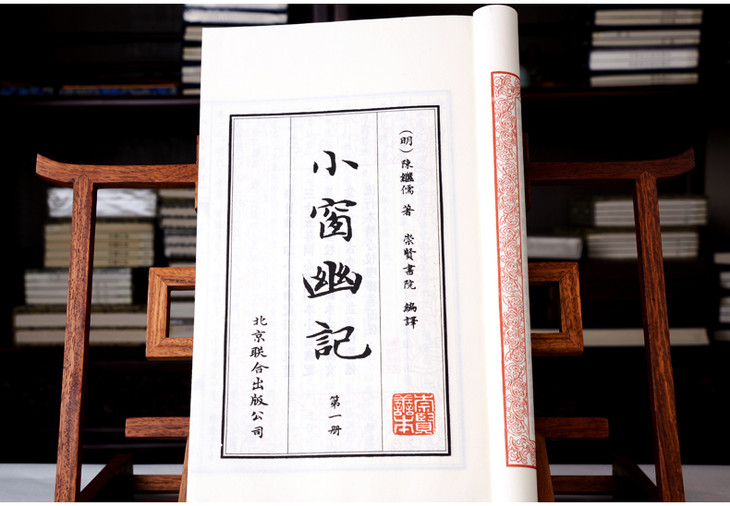 (明)陳繼儒 著 崇賢書院 編譯
崇賢善本
小窗幽記
第一册
北京联合出版公司